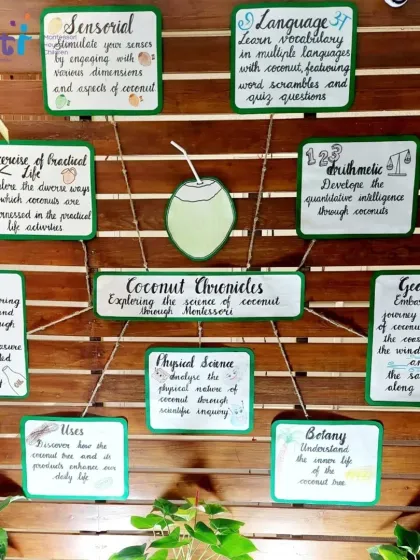 Montessori
House
Children
Sensorial
Stimulate your senses
by engaging with
various dimensions
and aspects of coconut
Language
Learn vocabulary
in multiple languages
with coconut, featuring
word scrambles and
quiz questions
of Practical
Life
the diverse ways
which coconuts are
in the practical
life activities
123
Arithmetic
Develope the
quantitative intelligence
through coconuts
Coconut Chronicles
Exploring the science of coconut
through Montessori
journey
of cocon
the coas
the wind
an
the sa
along
Physical Science
Analyse the
physical nature of
coconut through
scientific inquiry
Uses
Discover how the
coconut tree and its
products enhance our
daily life
Botany
Understand
the inner life
of the
coconut tree